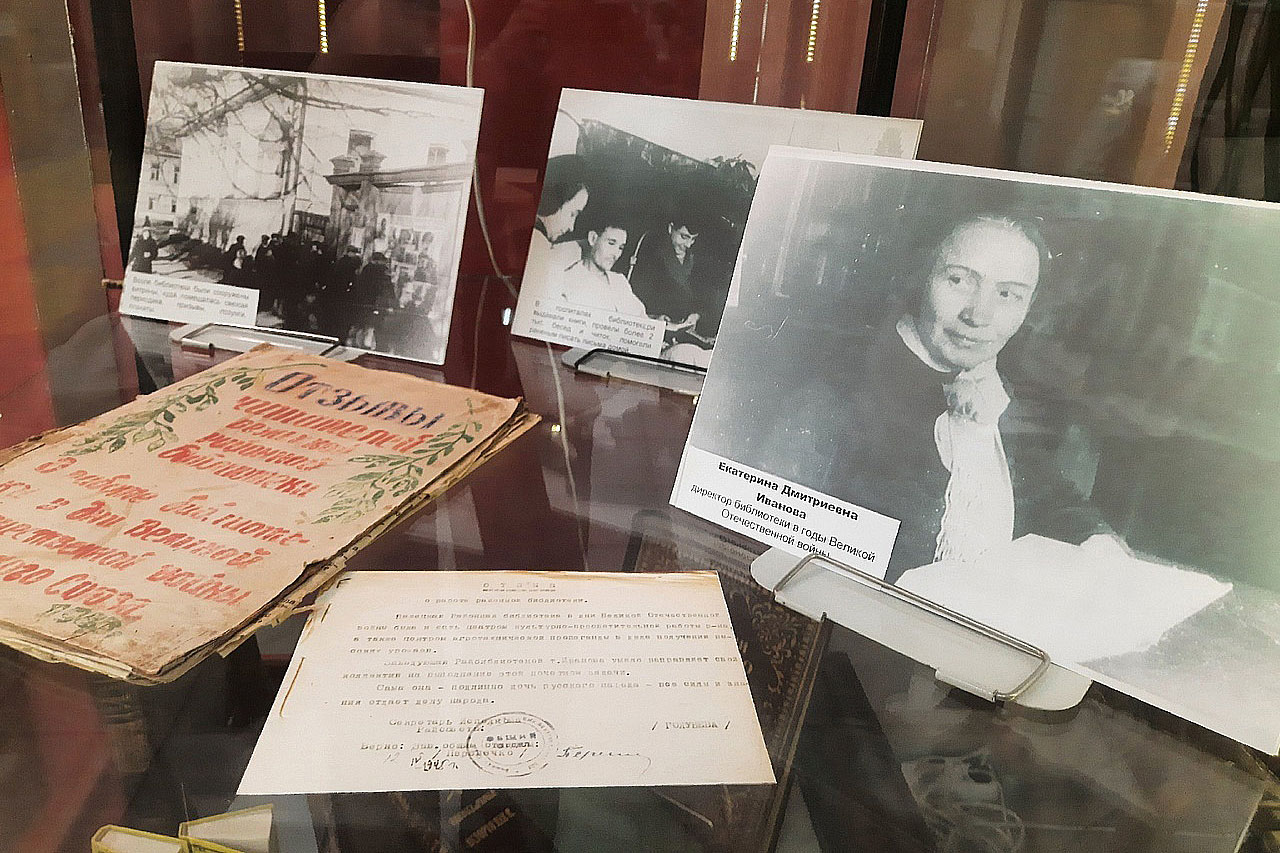 Возле библиотеки были сооружены
витрины, куда помещались свежая
периодика, призывы, лозунги,
плакаты
В госпиталях библиотекари
выдавали книги, провели более 2
тыс. бесед и читок, помогали
раненым писать письма домой
Екатерина Дмитриевна
Иванова
директор библиотеки в годы Великой
Отечественной войны
Отзывы
читателей
районной
библиотеки
О работе библиоте-
в дни Великой
войны
Союза
ОТЗЫВ
о работе районной библиотеки.
Районная библиотека в дни Великой Отечественной
войны была и есть центром культурно-просветительной работы р-на,
а также центром агротехнической пропаганды в деле получения вы-
соких урожаев.
Заведующая Райбиблиотекой т.Иванова умело направляет свой
коллектив на выполнение этой почетной задачи.
Сама она - подлинно дочь русского народа - все силы и зна-
ния отдает делу народа.
Секретарь исполкома
Райсовета: / ГОЛУБЕВА /
Верно: Зав. общим отделом:
ОБЩИЙ